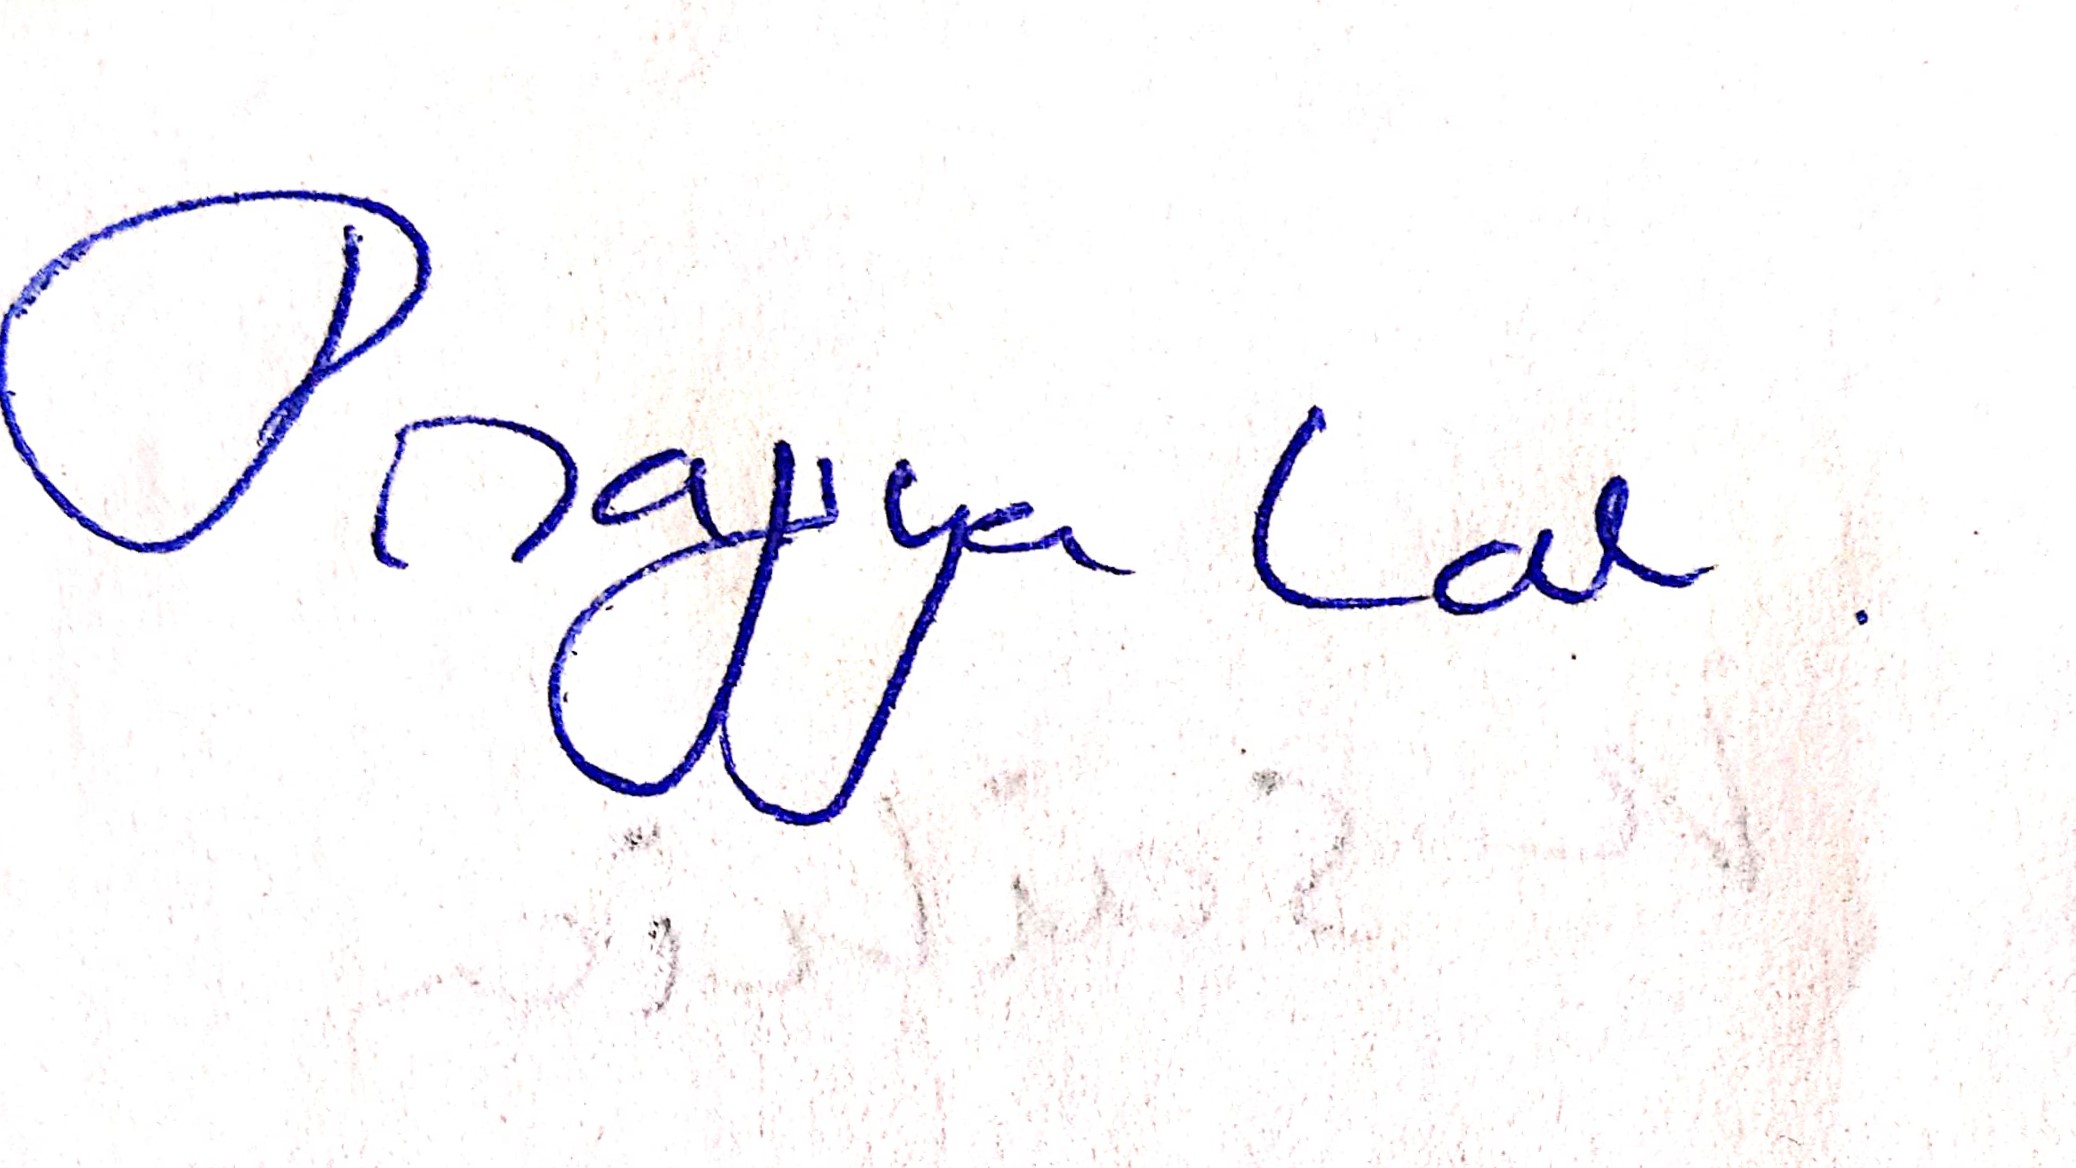 Pragya Lal.